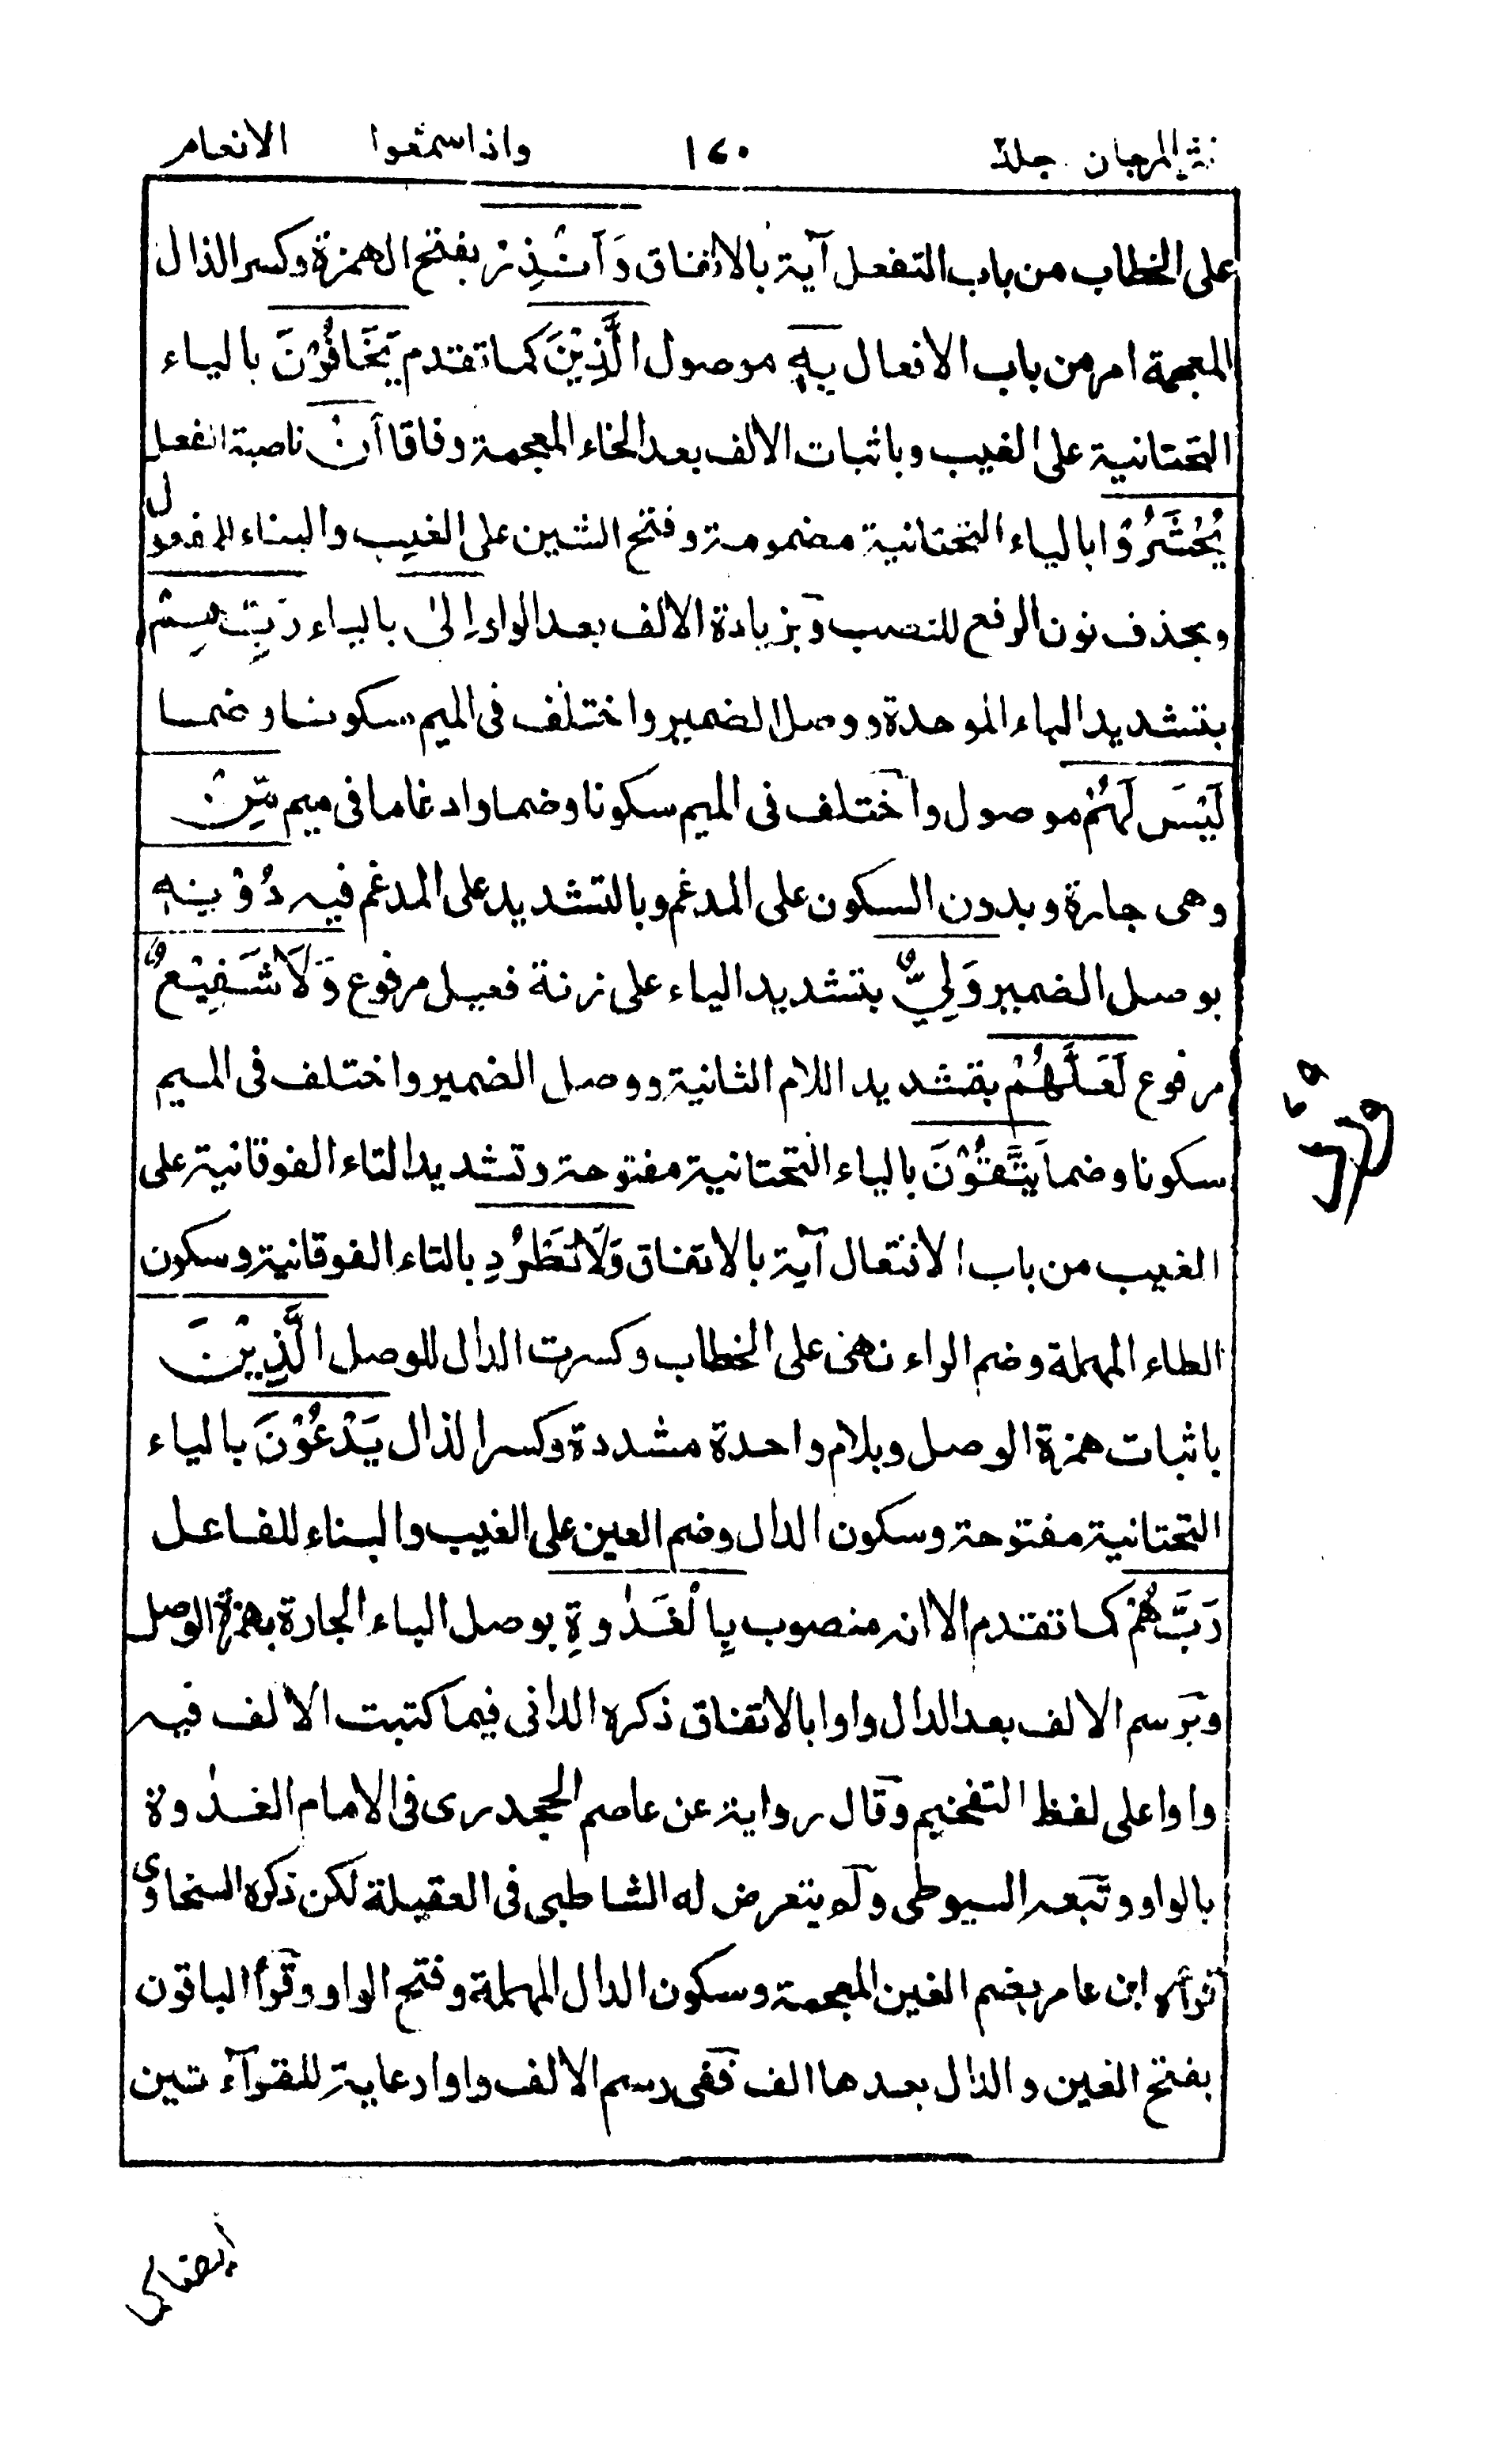 نثر المرجان جلد ١٧٠ واذا سمعوا الانعام
على الخطاب من باب التفعل آية بالاتفاق وَاَنْذِرْ بفتح الهمزة وكسر الذال
المعجمة امر من باب الافعال بِهِ موصول الَّذِيْنَ كما تقدم يَخَافُوْنَ بالياء
التحتانية على الغيب وباثبات الالف بعد الخاء المعجمة وفاقا اَنْ ناصبة الفعل
يُحْشَرُوْا بالياء التحتانية مضمومة وفتح الشين على الغيب والبناء للمفعول
وبحذف نون الرفع للنصب وبزيادة الالف بعد الواو اِلىٰ بالياء رَبِّهِمْ
بتشديد الباء الموحدة ووصل الضمير واختلف فى الميم سكونا وضما
لَيْسَ لَهُمْ موصول واختلف فى الميم سكونا وضما وادغاما فى ميم مِّنْ
وهى جارة وبدون السكون على المدغم وبالتشديد على المدغم فيه دُوْنِهِ
بوصل الضمير وَلِيٌّ بتشديد الياء على زنة فعيل مرفوع وَلَا شَفِيْعٌ
مرفوع لَعَلَّهُمْ بتشديد اللام الثانية ووصل الضمير واختلف فى الميم
سكونا وضما يَتَّقُوْنَ بالياء التحتانية مفتوحة وتشديد التاء الفوقانية على
الغيب من باب الافتعال آية بالاتفاق وَلَا تَطْرُدِ بالتاء الفوقانية وسكون
الطاء المهملة وضم الراء نهى على الخطاب وكسرت الدال للوصل الَّذِيْنَ
باثبات همزة الوصل وبلام واحدة مشددة وكسر الذال يَدْعُوْنَ بالياء
التحتانية مفتوحة وسكون الدال وضم العين على الغيب والبناء للفاعل
رَبَّهُمْ كما تقدم الا انه منصوب بِالْغَدٰوةِ بوصل الباء الجارة بهمزة الوصل
وبرسم الالف بعد الدال واوا بالاتفاق ذكره الدانى فيما كتبت الالف فيه
واوا على لفظ التفخيم وقال رواية عن عاصم الجحدرى فى الامام الغدٰوة
بالواو وتبعه السيوطى ولم يتعرض له الشاطبى فى العقيلة لكن ذكره السخاوى
قرأه ابن عامر بضم الغين المعجمة وسكون الدال المهملة وفتح الواو وقرأ الباقون
بفتح الغين والدال بعدها الف ففى رسم الالف واوا رعاية للقرآءتين